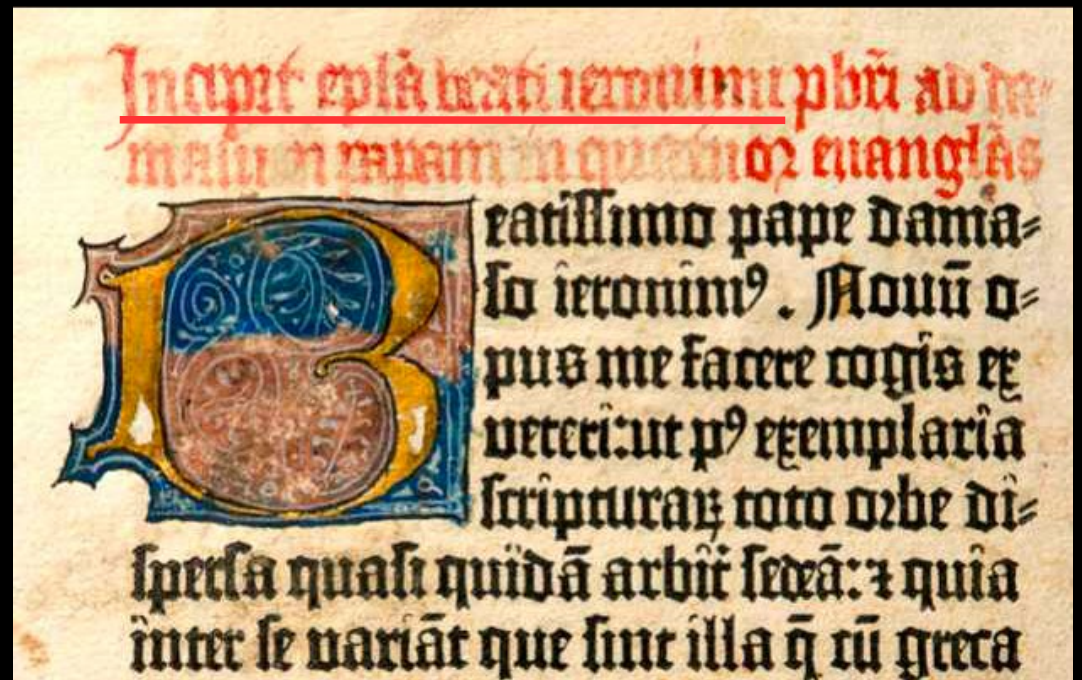 Incipit epl̃a beati ieronimi pbr̃i ad da-
masum papam in quatuor euangl̃as
Beatissimo pape dama⸗
so ieronimꝰ. Nouū o⸗
pus me facere cogis ex
veteri:ut pꝰ exemplaria
scripturaꝝ toto orbe di⸗
spersa quasi quidā arbit̃ sedeā:⁊ quia
inter se variāt que sint illa q̄ cū greca